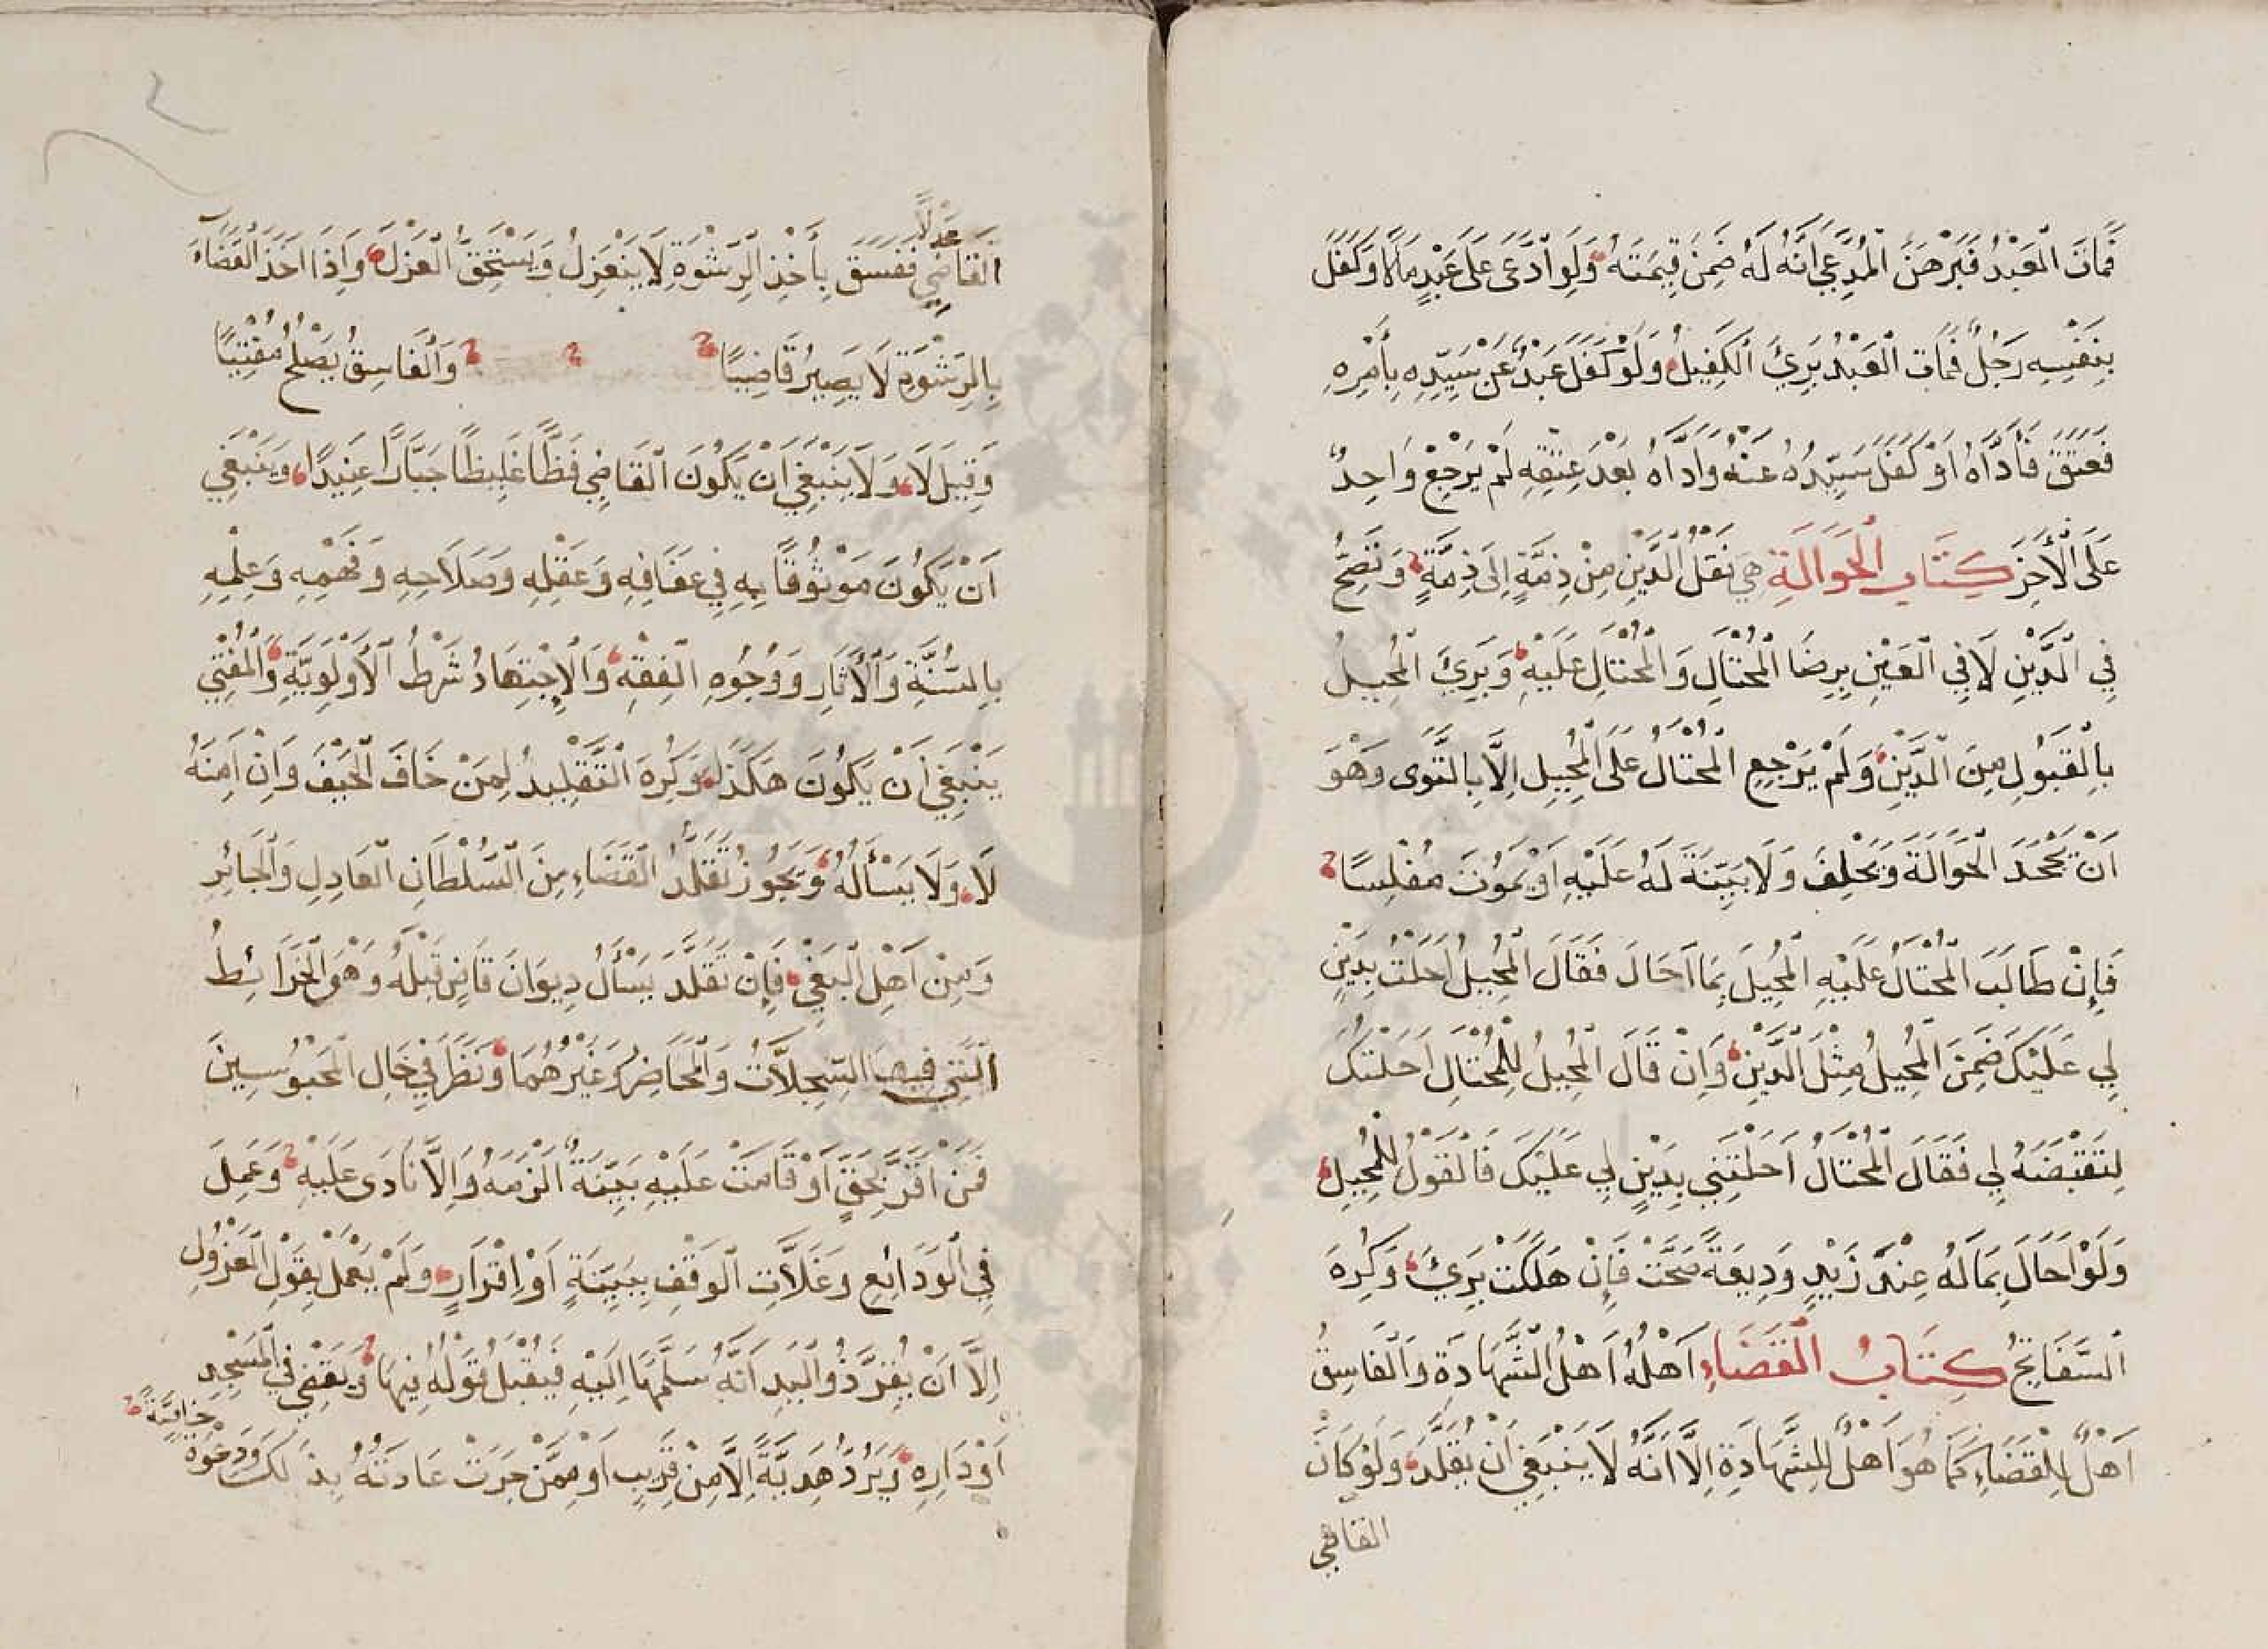 فَمَاتَ الْعَبْدُ فَبَرْهَنَ الْمُدَّعِي اَنَّهُ لَهُ ضَمِنَ قِيمَتَهُ وَلَوِ ادَّعَى عَلَى عَبْدٍ مَالًا وَكَفَلَ
بِنَفْسِهِ رَجُلٌ فَمَاتَ الْعَبْدُ بَرِئَ الْكَفِيلُ وَلَوْ كَفَلَ عَبْدٌ عَنْ سَيِّدِهِ بِأَمْرِهِ
فَعَتَقَ فَأَدَّاهُ اَوْ كَفَلَ سَيِّدُهُ عَنْهُ وَاَدَّاهُ بَعْدَ عِتْقِهِ لَمْ يَرْجِعْ وَاحِدٌ
عَلَى الْأٰخَرِ كِتَابُ الْحَوَالَةِ هِيَ نَقْلُ الدَّيْنِ مِنْ ذِمَّةٍ اِلَى ذِمَّةٍ وَتَصِحُّ
فِي الدَّيْنِ لَا فِي الْعَيْنِ بِرِضَا الْمُحْتَالِ وَالْمُحْتَالِ عَلَيْهِ وَبَرِئَ الْمُحِيلُ
بِالْقَبُولِ مِنَ الدَّيْنِ وَلَمْ يَرْجِعِ الْمُحْتَالُ عَلَى الْمُحِيلِ اِلَّا بِالتَّوَى وَهُوَ
اَنْ يَجْحَدَ الْحَوَالَةَ وَيَحْلِفَ وَلَا بَيِّنَةَ لَهُ عَلَيْهِ اَوْ يَمُوتَ مُفْلِسًا
فَإِنْ طَالَبَ الْمُحْتَالُ عَلَيْهِ الْمُحِيلَ بِمَا اَحَالَ فَقَالَ الْمُحِيلُ اَحَلْتُ بِدَيْنٍ
لِي عَلَيْكَ ضَمِنَ الْمُحِيلُ مِثْلَ الدَّيْنِ وَاِنْ قَالَ الْمُحِيلُ لِلْمُحْتَالِ اَحَلْتُكَ
لِتَقْبِضَهُ لِي فَقَالَ الْمُحْتَالُ اَحَلْتَنِي بِدَيْنٍ لِي عَلَيْكَ فَالْقَوْلُ لِلْمُحِيلِ
وَلَوْ اَحَالَ بِمَا لَهُ عِنْدَ زَيْدٍ وَدِيعَةً صَحَّتْ فَإِنْ هَلَكَتْ بَرِئَ وَكُرِهَ
السَّفَاتِجُ كِتَابُ الْقَضَاءِ اَهْلُهُ اَهْلُ الشَّهَادَةِ وَالْفَاسِقُ
اَهْلٌ لِلْقَضَاءِ كَمَا هُوَ اَهْلٌ لِلشَّهَادَةِ اِلَّا اَنَّهُ لَا يَنْبَغِي اَنْ يُقَلَّدَ وَلَوْ كَانَ
القاضي
عَدْلًا
الْقَاضِي فَفَسَقَ بِأَخْذِ الرِّشْوَةِ لَا يَنْعَزِلُ وَيَسْتَحِقُّ الْعَزْلَ وَاِذَا اَخَذَ الْقَضَاءَ
بِالرِّشْوَةِ لَا يَصِيرُ قَاضِيًا وَالْفَاسِقُ يَصْلُحُ مُفْتِيًا
وَقِيلَ لَا وَلَا يَنْبَغِي اَنْ يَكُونَ الْقَاضِي فَظًّا غَلِيظًا جَبَّارًا عَنِيدًا وَيَنْبَغِي
اَنْ يَكُونَ مَوْثُوقًا بِهِ فِي عَفَافِهِ وَعَقْلِهِ وَصَلَاحِهِ وَفَهْمِهِ وَعِلْمِهِ
بِالسُّنَّةِ وَالْأٰثَارِ وَوُجُوهِ الْفِقْهِ وَالْاِجْتِهَادُ شَرْطُ الْأَوْلَوِيَّةِ وَالْمُفْتِي
يَنْبَغِي اَنْ يَكُونَ هَكَذَا وَكُرِهَ التَّقْلِيدُ لِمَنْ خَافَ الْحَيْفَ وَاِنْ اَمِنَهُ
لَا وَلَا يَسْأَلُهُ وَيَجُوزُ تَقَلُّدُ الْقَضَاءِ مِنَ السُّلْطَانِ الْعَادِلِ وَالْجَائِرِ
وَمِنْ اَهْلِ الْبَغْيِ فَإِنْ تَقَلَّدَ يَسْأَلُ دِيوَانَ قَاضٍ قَبْلَهُ وَهُوَ الْخَرَائِطُ
الَّتِي فِيهَا السِّجِلَّاتُ وَالْمَحَاضِرُ وَغَيْرُهُمَا وَنَظَرَ فِي حَالِ الْمَحْبُوسِينَ
فَمَنْ اَقَرَّ بِحَقٍّ اَوْ قَامَتْ عَلَيْهِ بَيِّنَةٌ اَلْزَمَهُ وَاِلَّا نَادَى عَلَيْهِ وَعَمِلَ
فِي الْوَدَائِعِ وَغَلَّاتِ الْوَقْفِ بِبَيِّنَةٍ اَوْ اِقْرَارٍ وَلَمْ يَعْمَلْ بِقَوْلِ الْمَعْزُولِ
اِلَّا اَنْ يُقِرَّ ذُو الْيَدِ اَنَّهُ سَلَّمَهَا اِلَيْهِ فَيُقْبَلُ قَوْلُهُ فِيهَا وَيَقْضِي فِي الْمَسْجِدِ
اَوْ دَارِهِ وَيَرُدُّ هَدِيَّةً اِلَّا مِنْ قَرِيبٍ اَوْ مِمَّنْ جَرَتْ عَادَتُهُ بِذَلِكَ وَدَعْوَةً
خَاصَّةً